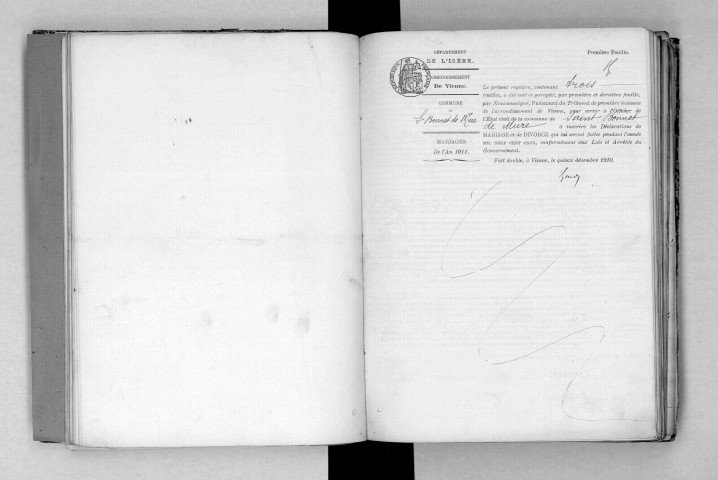 DÉPARTEMENT
DE L'ISÈRE.
ARRONDISSEMENT
De Vienne.
COMMUNE
de
St Bonnet de Mure
MARIAGES
De l'An 1911.
Première Feuille.
Le présent registre, contenant trois
feuilles, a été coté et paraphé, par première et dernière feuille,
par Nous soussigné, Président du Tribunal de première instance
de l'arrondissement de Vienne, pour servir à l'Officier de
l'État civil de la commune de Saint Bonnet
de Mure à inscrire les Déclarations de
MARIAGE et de DIVORCE qui lui seront faites pendant l'année
MIL NEUF CENT ONZE, conformément aux Lois et Arrêtés du
Gouvernement.
Fait double, à Vienne, le quinze décembre 1910.